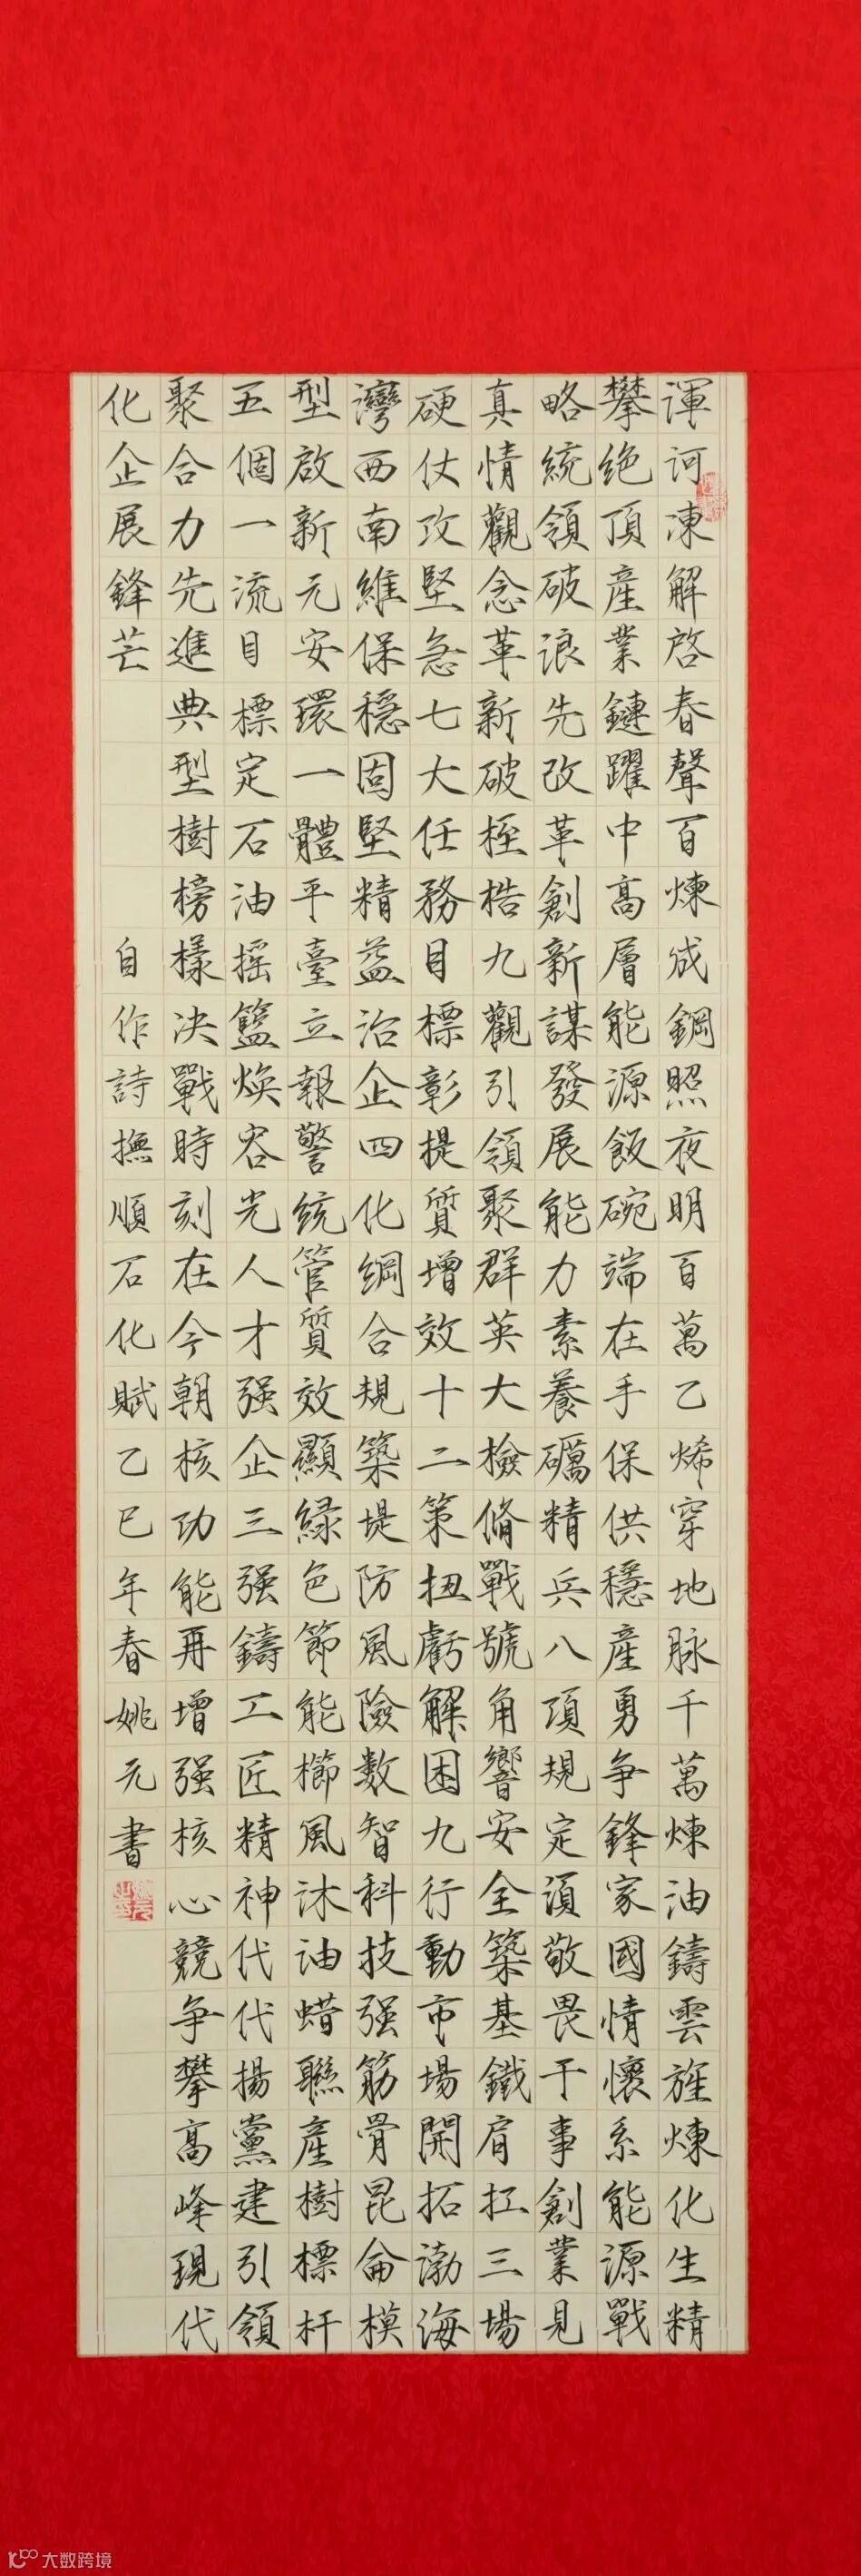 渾河凍解啓春聲百煉成鋼照夜明百萬乙烯穿地脉千萬煉油鑄雲旌煉化生精
攀绝頂產業鏈躍中高層能源飯碗端在手保供穩產勇争鋒家國情懷系能源戰
略統領破浪先改革創新謀發展能力素養礪精兵八項規定須敬畏干事創業見
真情觀念革新破桎梏九觀引領聚群英大檢脩戰號角響安全築基鐵肩扛三場
硬仗攻堅急七大任務目標彰提質增效十二策扭虧解困九行動市場開拓渤海
灣西南維保穩固堅精益治企四化綱合規築堤防風險數智科技强筋骨昆侖模
型啟新元安環一體平臺立報警统管質效顯緑色節能櫛風沐油蜡聯產樹標杆
五個一流目標定石油摇籃焕容光人才强企三强鑄工匠精神代代揚黨建引領
聚合力先進典型樹榜樣决戰時刻在今朝核功能再增强核心競争攀高峰現代
化企展鋒芒
自作詩撫順石化賦乙巳年春姚元書
大数跨境